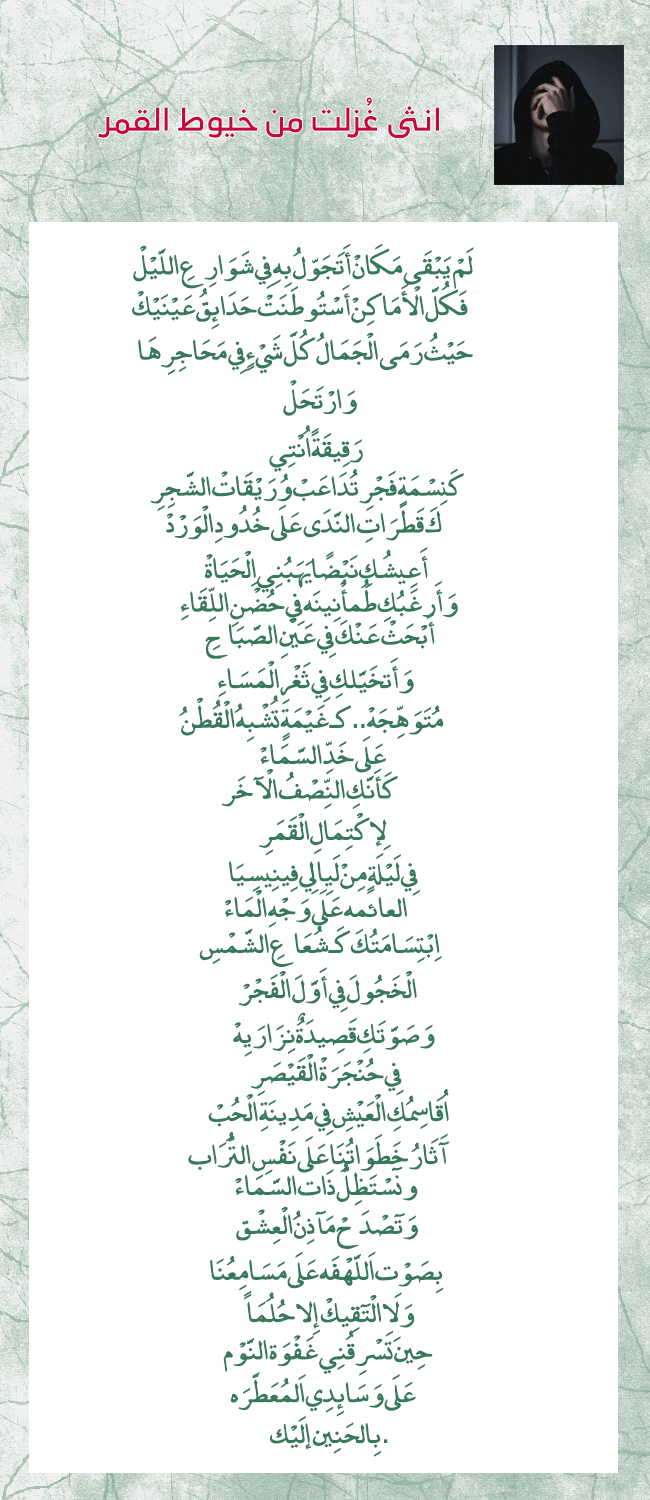 انثى غُزلت من خيوط القمر
لَمْ يَبْقَى مَكَانْ أَتَجَوّلُ بِهِ فِي شَوَارِعِ اللّيْلْ
فَكُلّ الْأَمَاكِنْ أَسْتُوطَنَتْ حَدَائِقُ عَيْنَيْكْ
حَيْثُ رَمَى الْجَمَالُ كُلّ شَيْءٍ فِي مَحَاجِرِهَا
وَارْتَحَلْ
رَقِيقَةً اُنْتِي
كَنِسْمَةِ فَجْرِ تُدَاعَبْ وُرَيْقَاتْ الشّجِرِ
كَ قَطَرَاتِ النّدَى عَلَى خُدُودِ الْوَرْدْ
أَعِيشُكِ نَبْضًا يَهَبُنِي اِلْحَيَاةْ
وَأَرغَبُكِ طُمأْنِينَه فِي حُضْنِ اللِّقَاءِ
أَبْحَثْ عَنْكَ فِي عَيْنِ الصّبَاحِ
وَأَتخَيّلكِ فِي ثَغْرِ الْمَسَاءِ
مُتَوَهِّجَهْ.. كـغَيْمَةٍ تُشْبِهُ الْقُطْنُ
عَلَى خَدِّ السّمَاءْ
كَأَنّكِ النِّصْفُ الْآخَر
لِإكْتِمَالِ الْقَمَرِ
فِي لَيْلَةٍ مِنْ لَيِالِي فِينِيسِيَا
العائمه عَلَى وَجْهِ الْمَاءْ
اِبْتِسَامَتُكَ كَـشُعَاعِ الشّمْسِ
الْخَجُولَ فِي أَوّلَ الْفَجْرْ
وَصَوّتَكِ قَصِيدَةٌ نِزَارَيِهْ
فِي حُنْجَرَةْ الْقَيْصَرِ
أُقَاسِمُكِ الْعَيْشِ فِي مَدِينَةِ الْحُبْ
آَثَارُ خَطَوَاتُنَا عَلَى نَفْسِ التُّرَاب
ونَسْتَظِلُّ ذَات السّمَاءْ
وَتَصْدَحْ مَآذِنُ الْعِشْق
بِصَوْت اَللّهْفَه عَلَى مَسَامِعُنَا
وَلَا الْتَقِيكْ إِلا حُلُمَاً
حِينَ تَسْرِقُنِي غَفْوَة النّوْم
عَلَى وَسَايِدِي اَلمُعَطّرَه
بِالحَنِين إلَيْك.